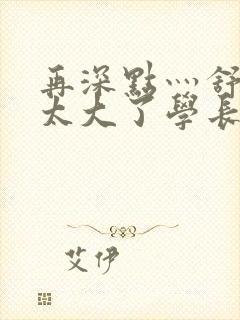 再深點灬舒
太大了學長
艾伊